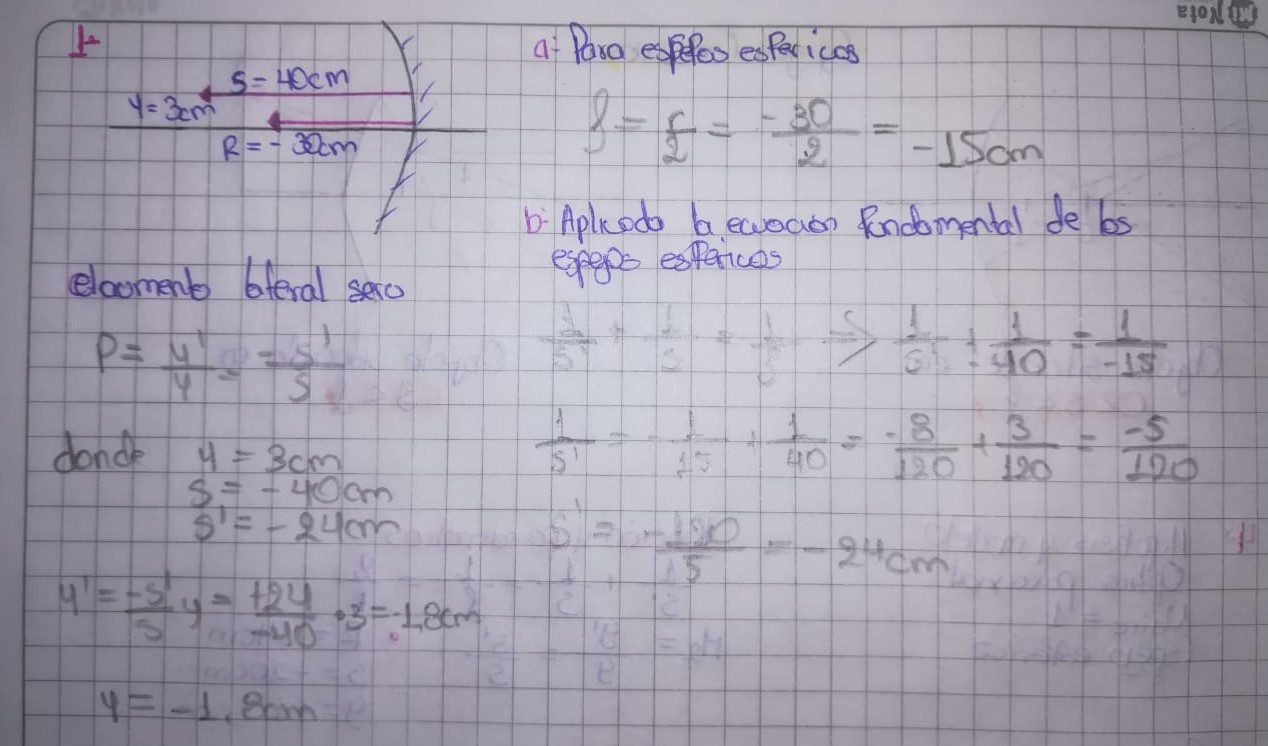 Nota
1-
S = 40cm
Y = 3cm
R = - 30cm
a- Para espejos esfericos
f = r/2 = -30/2 = -15cm
b- Aplicado la ecuacion fundamental de los
espejos esfericos
1/s' + 1/s = 1/f => 1/s' + 1/-40 = 1/-15
1/s' = - 1/15 + 1/40 = -8/120 + 3/120 = -5/120
s' = -120/5 = -24cm
elaomento lateral sera
P = y'/y = -s'/s
donde y = 3cm
s = -40cm
s' = -24cm
y' = -s'/s y = +24/-40 • 3 = -1,8cm
y = -1.8cm